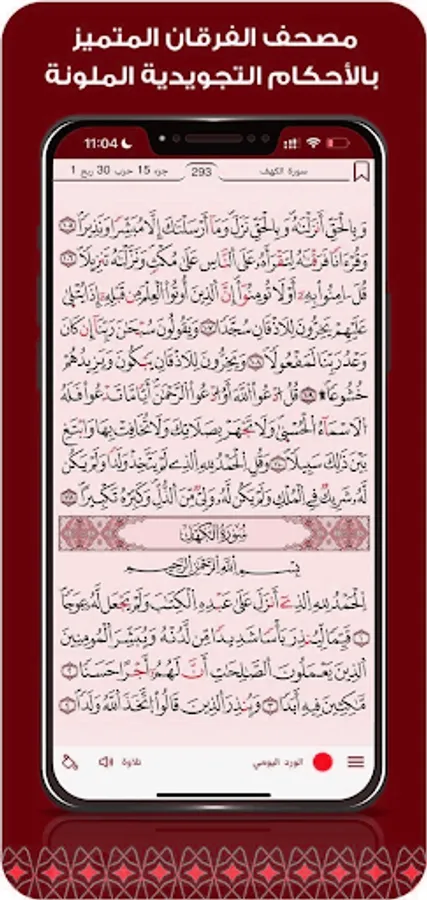 مصحف الفرقان المتميز
بالأحكام التجويدية الملونة
11:04
جزء 15 حزب 30 ربع 1
293
سورة الكهف
وَبِالْحَقِّ أَنزَلْنَٰهُ وَبِالْحَقِّ نَزَلَ وَمَا أَرْسَلْنَٰكَ إِلَّا مُبَشِّرًا وَنَذِيرًا
وَقُرْءَانًا فَرَقْنَٰهُ لِتَقْرَأَهُ عَلَى النَّاسِ عَلَىٰ مُكْثٍ وَنَزَّلْنَٰهُ تَنزِيلًا
قُلَ اٰمِنُوا بِهِ أَوْ لَا تُومِنُوا إِنَّ الَّذِينَ أُوتُوا الْعِلْمَ مِن قَبْلِهِ إِذَا يُتْلَىٰ
عَلَيْهِمْ يَخِرُّونَ لِلْأَذْقَانِ سُجَّدًا وَيَقُولُونَ سُبْحَٰنَ رَبِّنَا إِن كَانَ
وَعْدُ رَبِّنَا لَمَفْعُولًا وَيَخِرُّونَ لِلْأَذْقَانِ يَبْكُونَ وَيَزِيدُهُمْ
خُشُوعًا قُلُ ادْعُوا اللَّهَ أَوُ ادْعُوا الرَّحْمَٰنَ أَيًّا مَّا تَدْعُوا فَلَهُ
الْأَسْمَاءُ الْحُسْنَىٰ وَلَا تَجْهَرْ بِصَلَاتِكَ وَلَا تُخَافِتْ بِهَا وَابْتَغِ
بَيْنَ ذَٰلِكَ سَبِيلًا وَقُلِ الْحَمْدُ لِلَّهِ الَّذِي لَمْ يَتَّخِذْ وَلَدًا وَلَمْ يَكُن
لَّهُ شَرِيكٌ فِي الْمُلْكِ وَلَمْ يَكُن لَّهُ وَلِيٌّ مِّنَ الذُّلِّ وَكَبِّرْهُ تَكْبِيرًا
سُورَةُ الْكَهْفِ
بِسْمِ اللَّهِ الرَّحْمَٰنِ الرَّحِيمِ
الْحَمْدُ لِلَّهِ الَّذِي أَنزَلَ عَلَىٰ عَبْدِهِ الْكِتَٰبَ وَلَمْ يَجْعَل لَّهُ عِوَجًا
قَيِّمًا لِّيُنذِرَ بَأْسًا شَدِيدًا مِّن لَّدُنْهُ وَيُبَشِّرَ الْمُومِنِينَ
الَّذِينَ يَعْمَلُونَ الصَّٰلِحَٰتِ أَنَّ لَهُمْ أَجْرًا حَسَنًا
مَّٰكِثِينَ فِيهِ أَبَدًا وَيُنذِرَ الَّذِينَ قَالُوا اتَّخَذَ اللَّهُ وَلَدًا
الورد اليومي
تلاوة